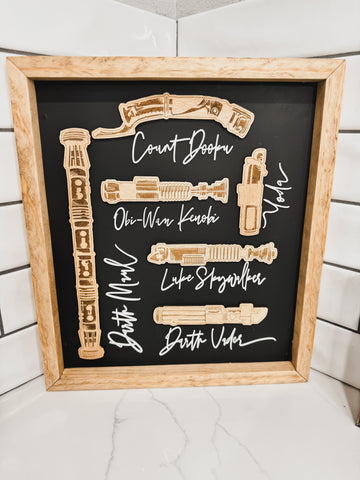 Count Dooku
Obi-Wan Kenobi
Yoda
Luke Skywalker
Darth Maul
Darth Vader